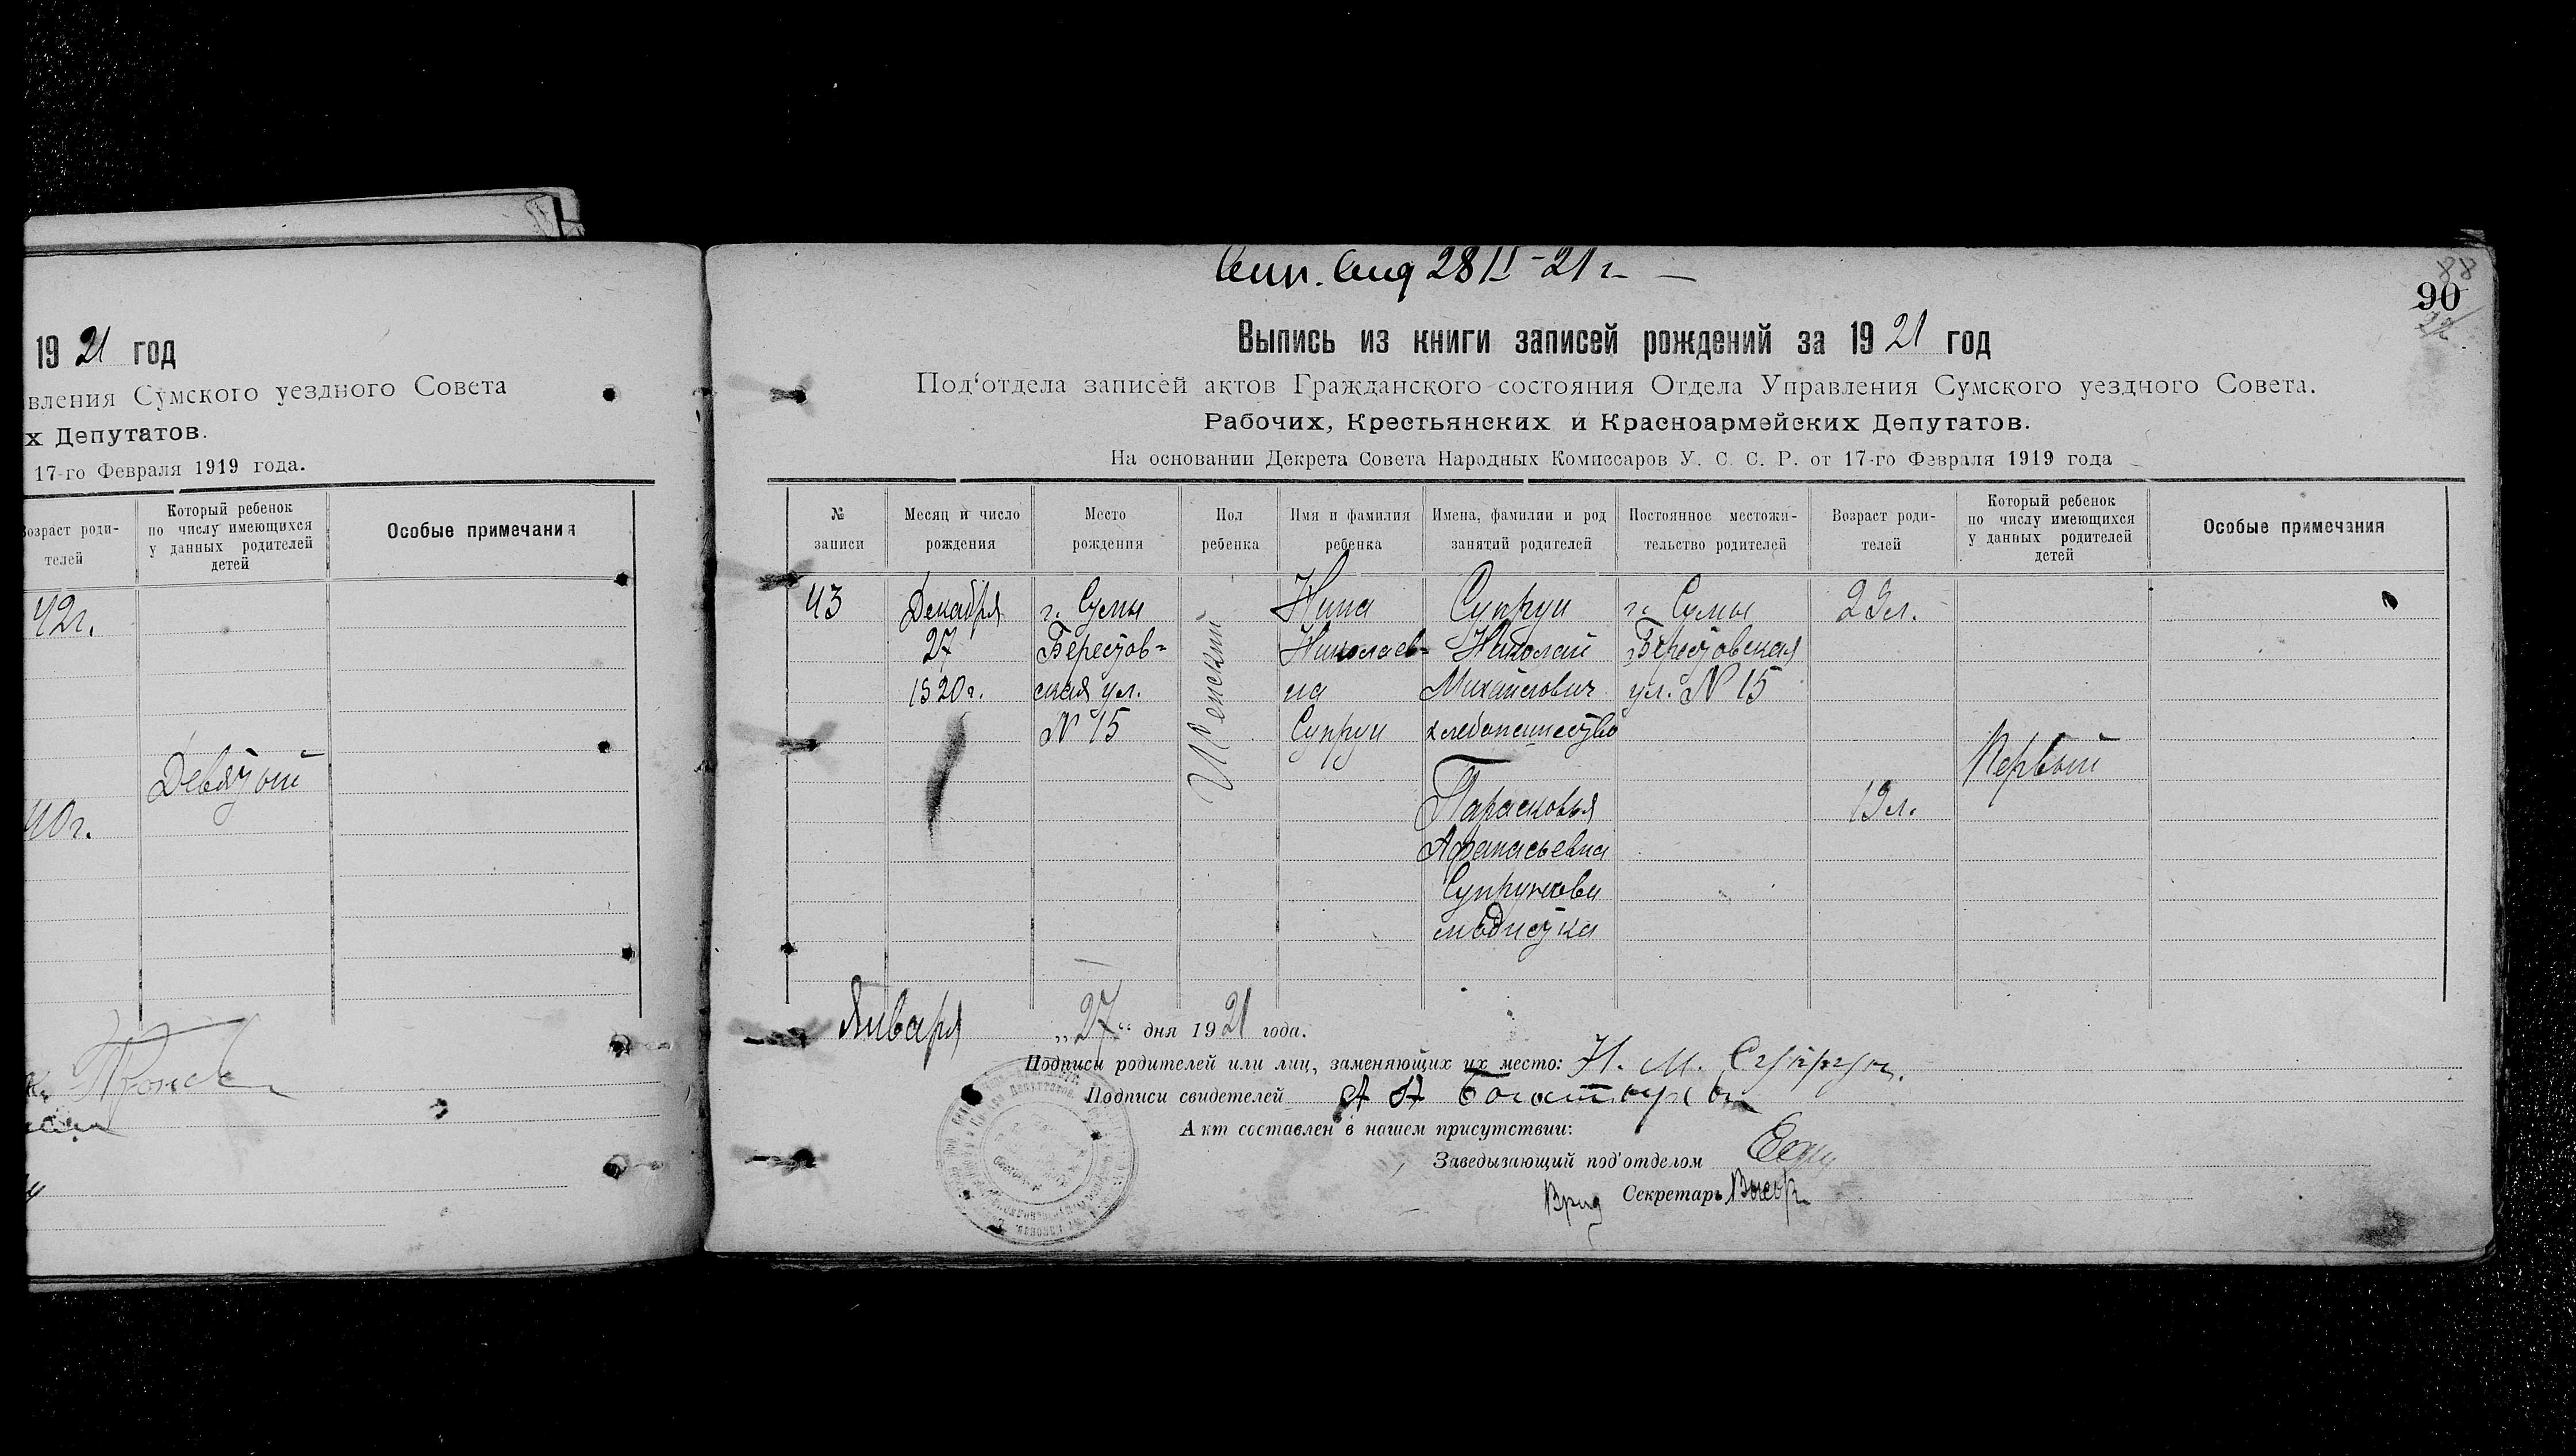 1921 год
вления Сумского уездного Совета
х Депутатов.
17-го Февраля 1919 года.
Возраст роди-
телей
Который ребенок
по числу имеющихся
у данных родителей
детей
Особые примечания
42г.
Девятый
40г.
88
90
Выпись из книги записей рождений за 1921 год
Под‘отдела записей актов Гражданского состояния Отдела Управления Сумского уездного Совета.
Рабочих, Крестьянских и Красноармейских Депутатов.
На основании Декрета Совета Народных Комиссаров У. С. С. Р. от 17-го Февраля 1919 года
№
записи
Месяц и число
рождения
Место
рождения
Пол
ребенка
Имя и фамилия
ребенка
Имена, фамилии и род
занятий родителей
Постоянное местожи-
тельство родителей
Возраст роди-
телей
Который ребенок
по числу имеющихся
у данных родителей
детей
Особые примечания
43
Декабря
27
1920г.
г. Сумы
Берестов-
ская ул.
№ 15
Женский
Нина
Николаев-
на
Супрун
Супрун
Николай
Михайлович
хлебопашество
Парасковья
Афанасьевна
Супрунова
модистка
г. Сумы
Берестовская
ул. № 15
19л.
Первый
Января „27“ дня 1921 года.
Подписи родителей или лиц, заменяющих их место: Н. М. Супрун.
Подписи свидетелей
Акт составлен в нашем присутствии:
Заведызающий под‘отделом
Врид Секретарь